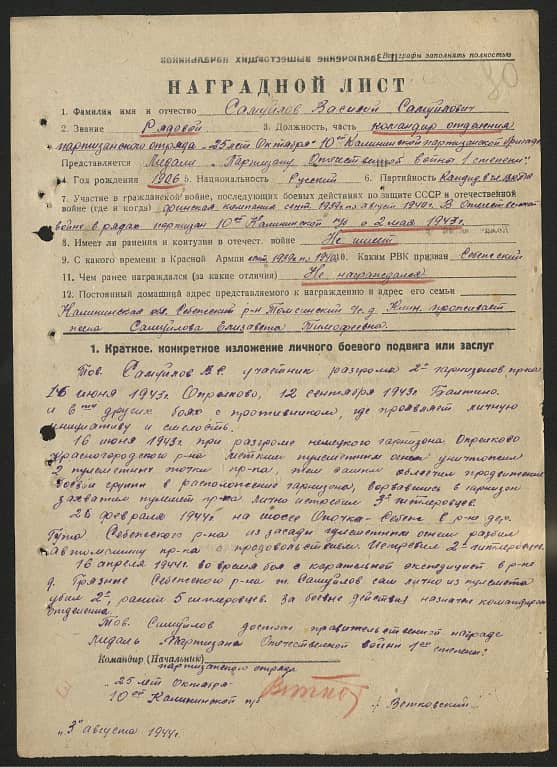 Все графы заполнять полностью
НАГРАДНОЙ ЛИСТ
1. Фамилия имя и отчество Самуйлов Василий Самуйлович
2. Звание Рядовой 3. Должность, часть командир отделения
партизанского отряда "25 лет Октября" 10ой Калининской партизанской бригады
Представляется к медали "Партизану Отечественной войны 1 степени".
4. Год рождения 1906 5. Национальность Русский 6. Партийность Кандид в чл ВКП(б)
7. Участие в гражданской войне, последующих боевых действиях по защите СССР и отечественной
войне (где и когда) финская кампания сент. 1939г. по август 1940г. В Отечественной
войне в рядах партизан 10ой Калининской п/б с 2 мая 1943г.
8. Имеет ли ранения и контузии в отечест. войне Не имеет
9. С какого времени в Красной Армии сент 1939г по 1940г 10. Каким РВК призван Себежский
11. Чем ранее награждался (за какие отличия) Не награждался
12. Постоянный домашний адрес представляемого к награждению и адрес его семьи
Калининская обл. Себежский р-н Томсинский с/с д. Клин. проживает
жена Самуйлова Елизавета Тимофеевна.
1. Краткое, конкретное изложение личного боевого подвига или заслуг
Тов. Самуйлов В.С. участник разгрома 2х гарнизонов пр-ка
16 июня 1943г Опрелково, 12 сентября 1943г Балтино.
и 6ти других боях с противником, где проявляет личную
инициативу и смелость.
16 июня 1943г при разгроме немецкого гарнизона Опрелково
Красногородского р-на метким пулеметным огнем уничтожил
2 пулеметных точки пр-ка, тем самым облегчил продвижение
боевой группы в расположение гарнизона, ворвавшись в гарнизон
захватил пулемет пр-ка лично истребил 3х гитлеровцев.
26 февраля 1944г на шоссе Опочка-Себеж в р-не дер.
Себежского р-на из засады пулеметным огнем разбил
автомашину пр-ка с продовольствием. Истребил 2х гитлеровцев.
16 апреля 1944г. во время боя с карательной экспедицией в р-не
д. Грязные Себежского р-на т. Самуйлов сам лично из пулемета
убил 2х, ранил 5 гитлеровцев. За боевые действия назначен командиром
отделения.
Тов. Самуйлов достоин правительственной награды
медаль "Партизана Отечественной войны 1ой степени".
Командир (Начальник)
партизанского отряда
"25 лет Октября"
10ой Калининской п/б
/ Ветковский /
"3" августа 1944г.